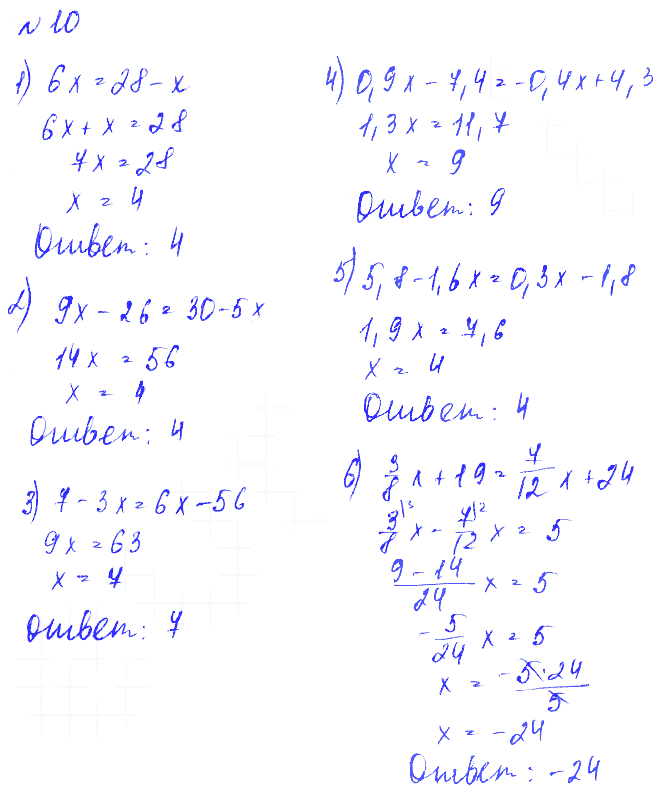 № 10
1) 6x = 28 - x
6x + x = 28
7x = 28
x = 4
Ответ: 4
2) 9x - 26 = 30 - 5x
14x = 56
x = 4
Ответ: 4
3) 7 - 3x = 6x - 56
9x = 63
x = 7
Ответ: 7
4) 0,9x - 7,4 = -0,4x + 4,3
1,3x = 11,7
x = 9
Ответ: 9
5) 5,8 - 1,6x = 0,3x - 1,8
1,9x = 7,6
x = 4
Ответ: 4
6) 3/8 x + 19 = 7/12 x + 24
3/8 |3 x - 7/12 |2 x = 5
(9 - 14)/24 x = 5
-5/24 x = 5
x = -5·24/5
x = -24
Ответ: -24